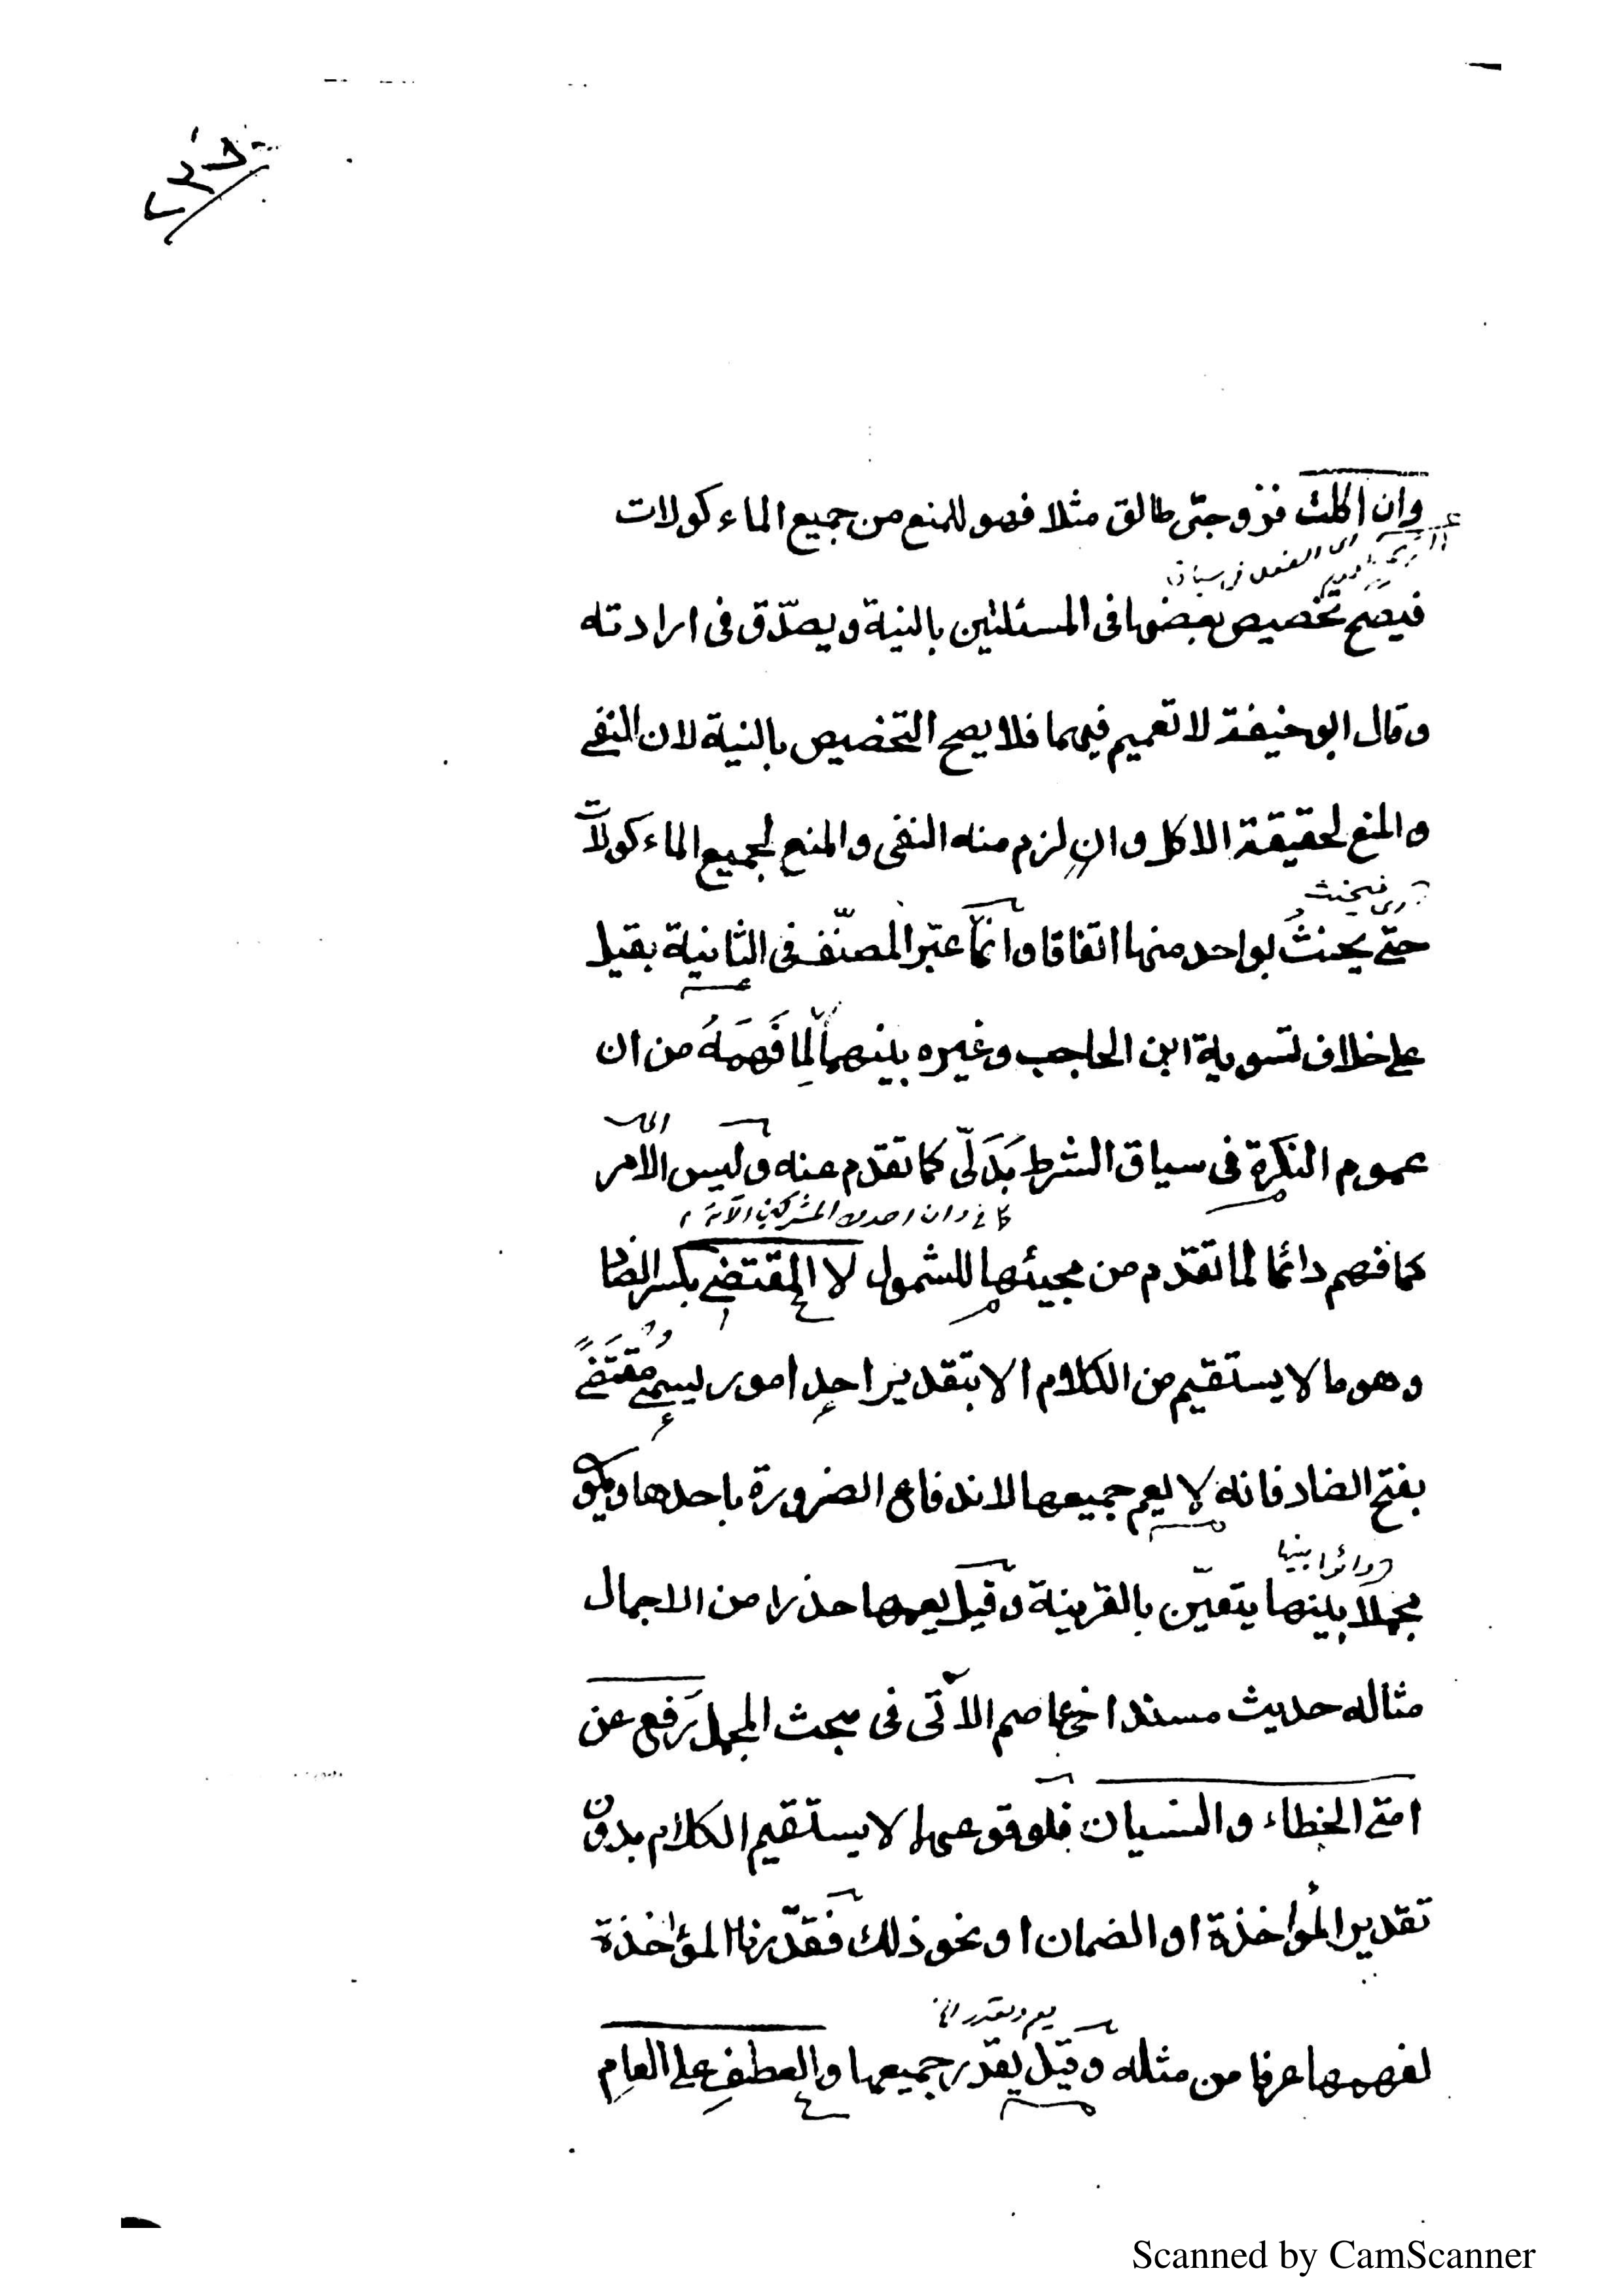 وان اكلت فزوجتى طالق مثلا فهو للمنع من جميع الماء كولات
اى الفعل فى سياق
فيصح تخصيص بعضها فى المسئلتين بالنية ويصدّق فى ارادته
وقال ابو حنيفة لا تعميم فيهما فلا يصح التخصيص بالنية لان النفى
والمنع لحقيقة الاكل وان لزم منه النفى والمنع لجميع الماء كولات
فيحنث
حتى يحنث بواحد منها اتفاقا وانما عبّر المصنّف فى الثانية بقيل
على خلاف تسوية ابن الحاجب وغيره بينهما لِمَا فَهِمَهُ من ان
عموم النكرة فى سياق الشرط بَدَلىّ كما تقدم عنه وليس الامر
كما فى وان احد من المشركين الآية
كما فهم دائما لما تقدّم من مجيئها للشمول لا المقتضى بكسر الضاد
وهو ما لا يستقيم من الكلام الا بتقدير احد امور يسمى مُقْتَضًى
بفتح الضاد فانه لا يعم جميعها لاندفاع الضرورة باحدها ويكو
دائرا بينها
مجملا بينها يتعيّن بالقرينة وقيل يعمها حذرا من الاجمال
مثاله حديث مسند اخى عاصم الآتى فى مبحث المجمل رفع عن
امتى الخطاء والنسيان فلوقوعهما لا يستقيم الكلام بدون
تقدير المؤاخذة او الضمان او نحو ذلك فقدّرنا المؤاخذة
يعم ويقدر الخ
لفهمها عرفا من مثله وقيل يقدر جميعها والعطفِ على العامِ
Scanned by CamScanner